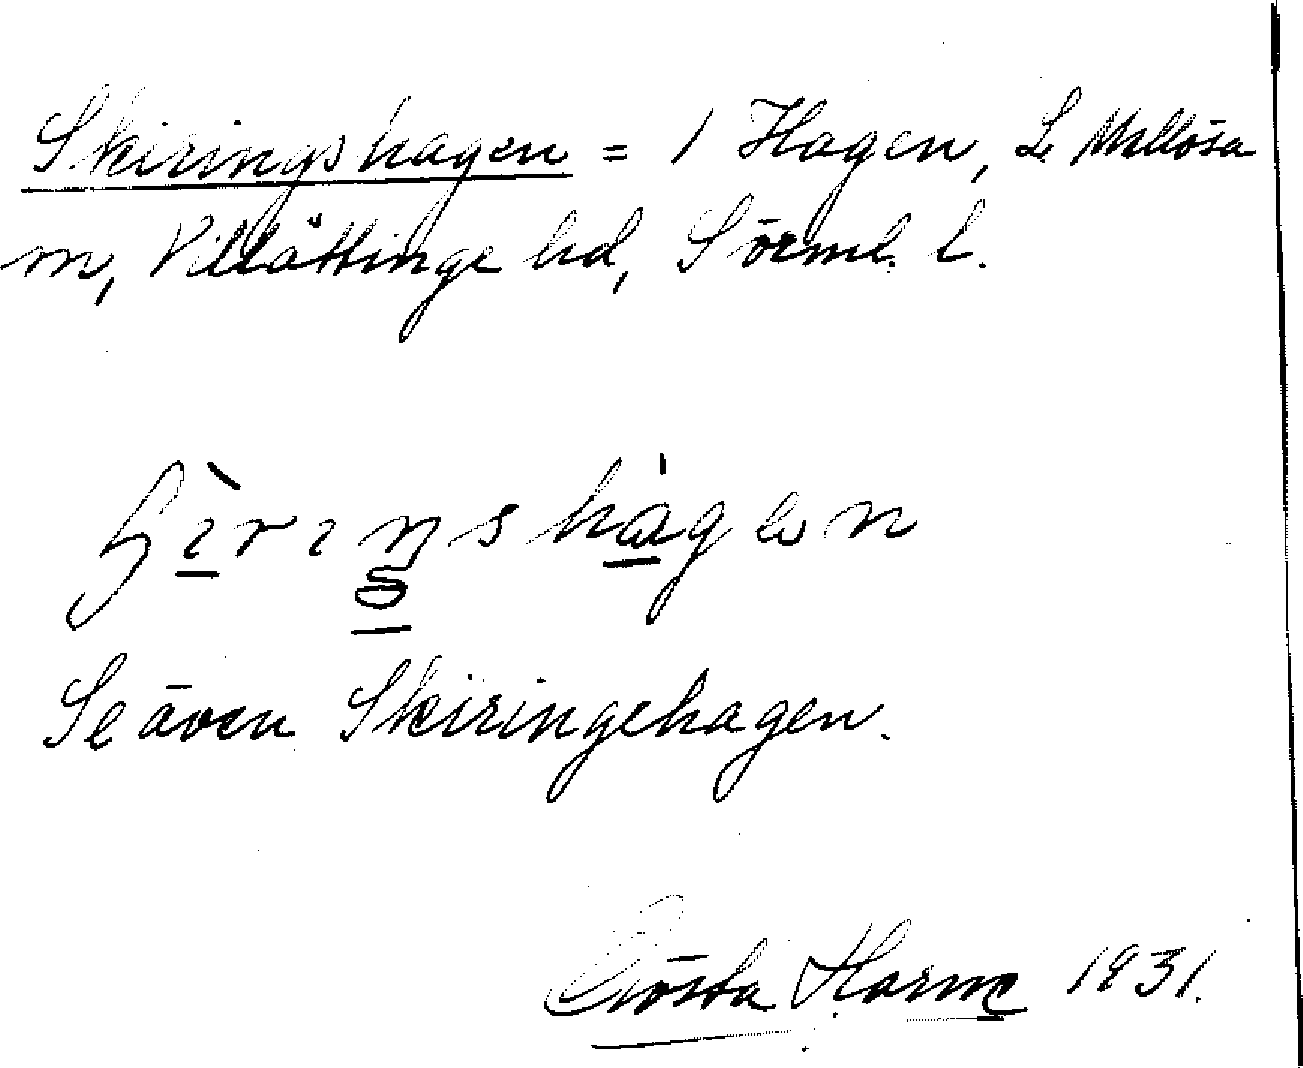 Skiringshagen = 1 Hagen, L Mellösa
sn, Villåttinge hd, Sörml. l.
Se även Skiringehagen.
Gösta Harmc 1931.